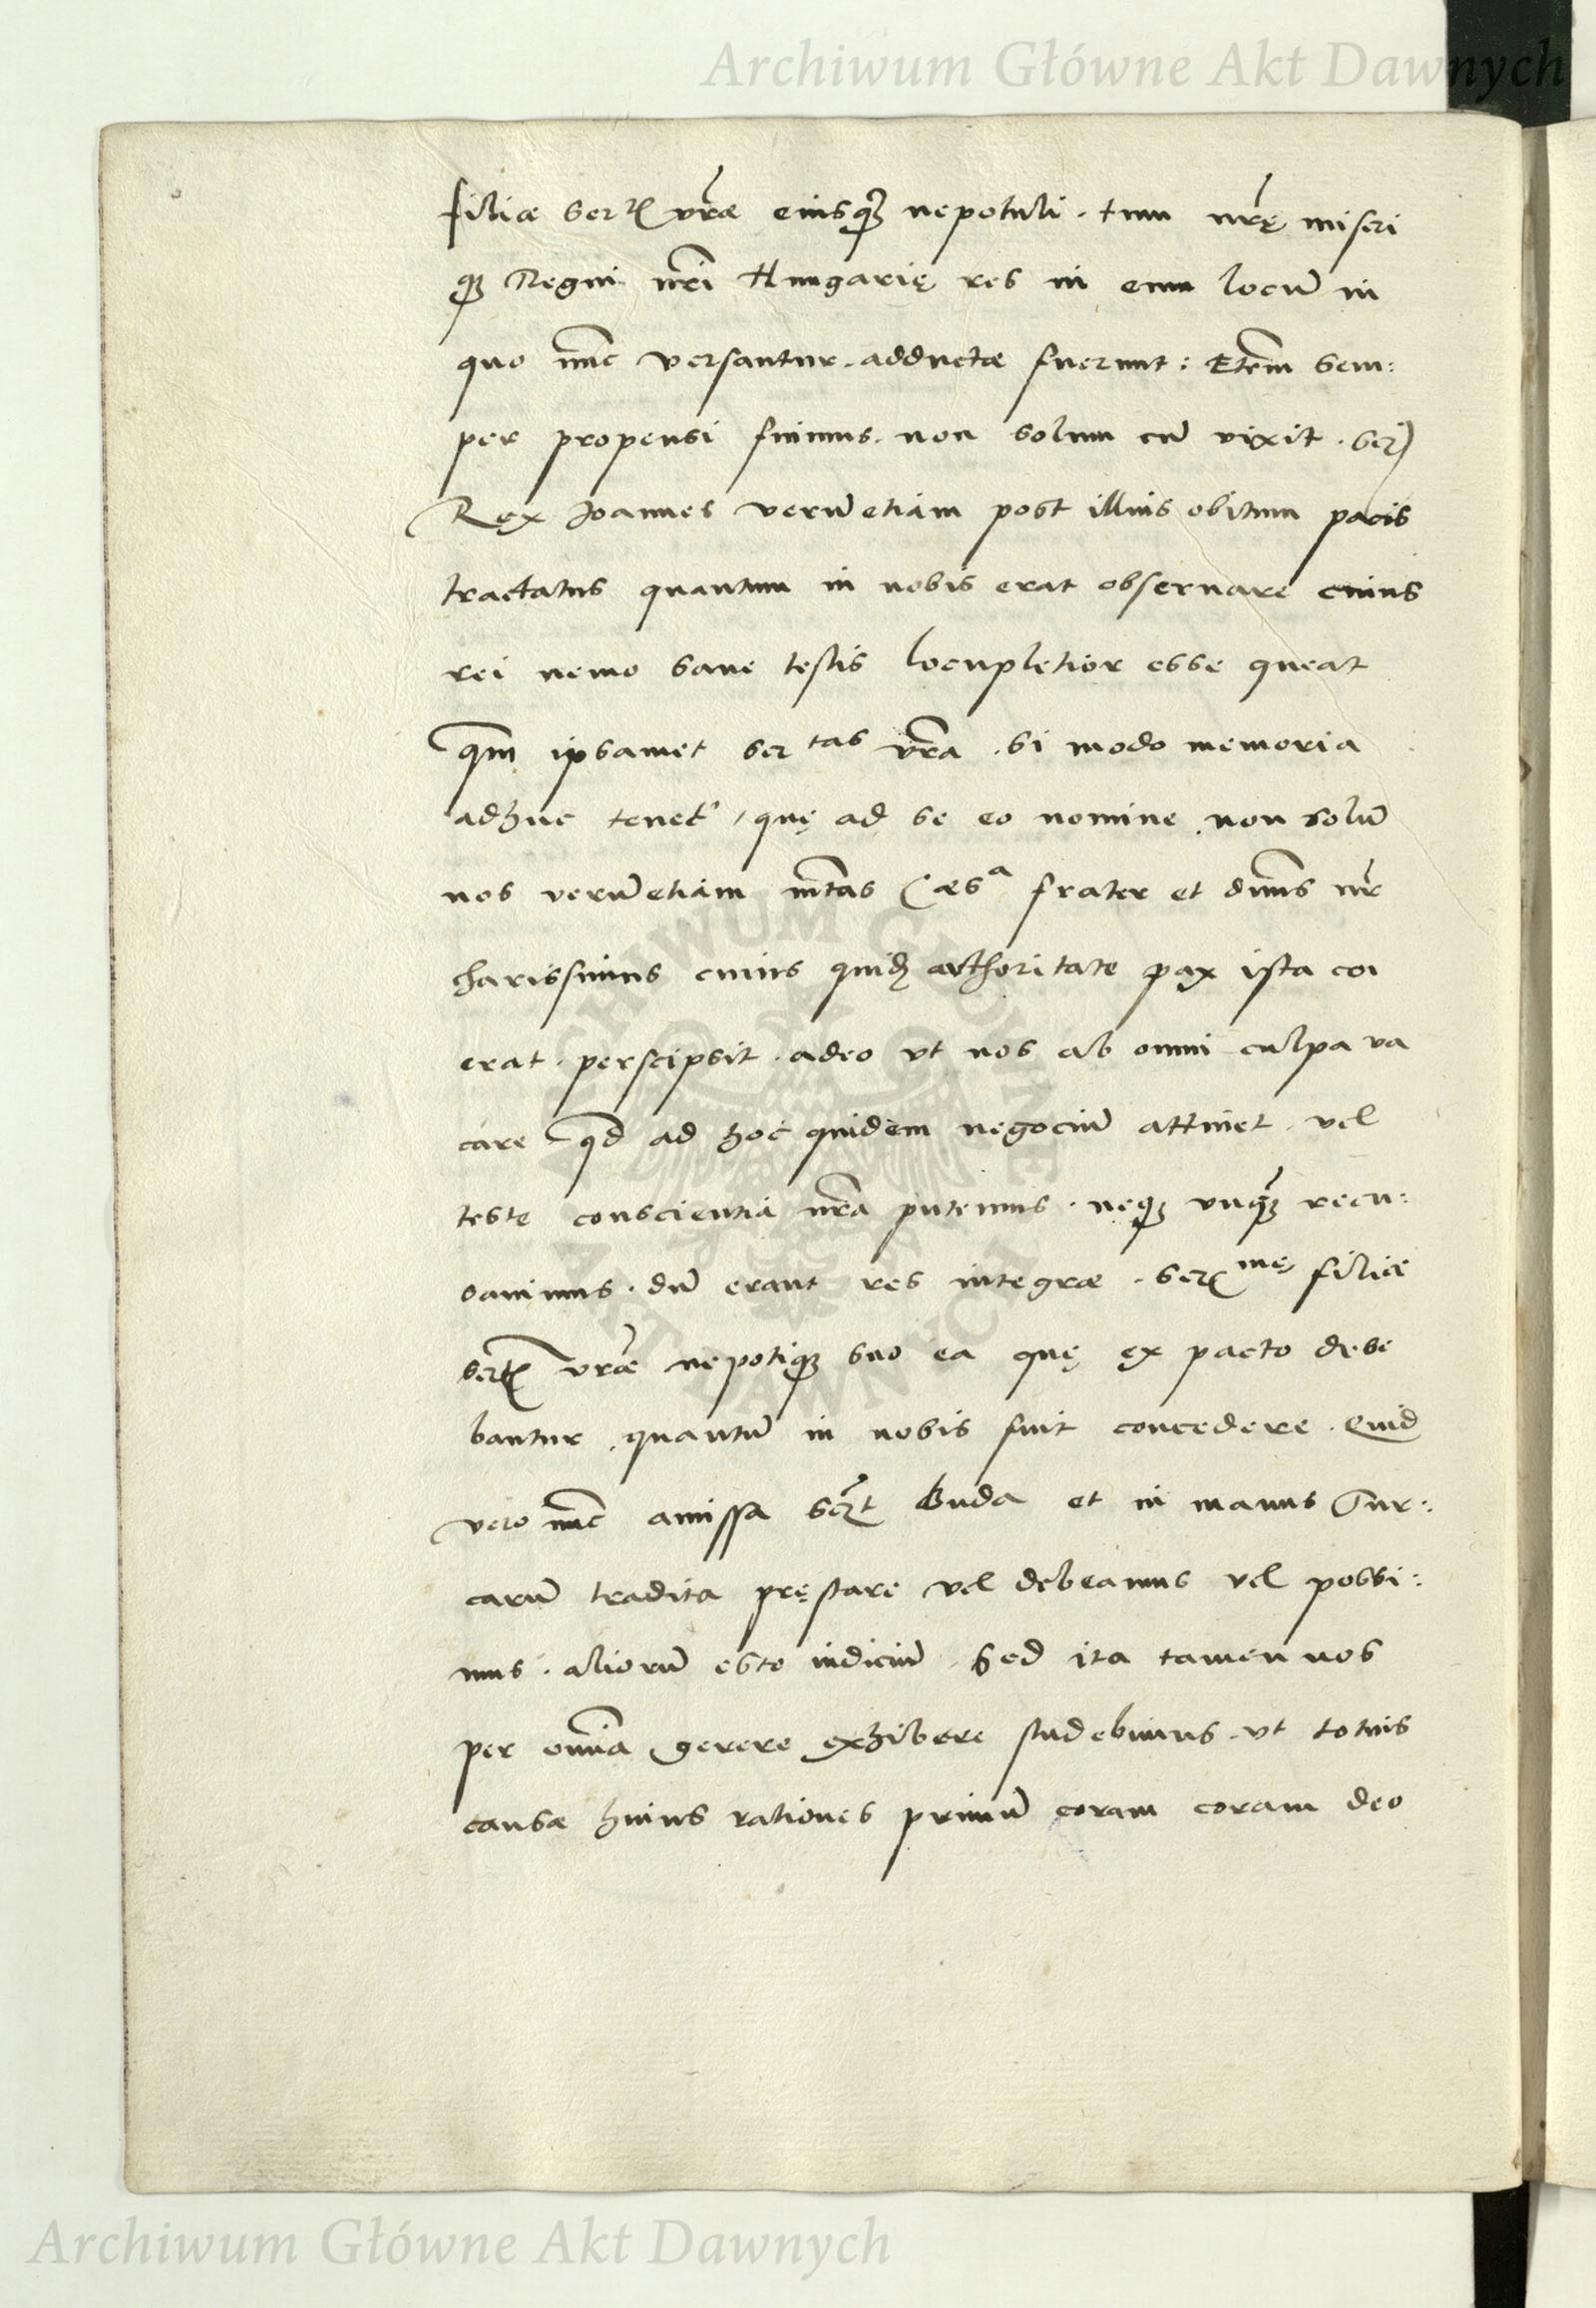 Archiwum Główne Akt Dawnych
filiæ Ser.tis vr̃æ eiusq3 nepotuli . tum nr̃ę miseri
q3 Regni nr̃i Hungarię res in eum locũ in
quo nũc versantur . adductæ fuerunt : Eteñi sem:
per propensi fuimus . non solum cũ vixit . Ser.
Rex Joannes verũetiam post illius obitum pacis
tractatus quantum in nobis erat obseruare cuius
rei nemo sane testis locupletior esse queat
q̃m ipsamet Ser tas vr̃a . si modo memoria
adhuc tenet , quę ad se eo nomine . non solũ
nos verũetiam m̃tas Cæsa frater et dñus nr̃
charissimus cuius quidẽ authoritate pax ista coi
erat . perscipsit . adeo vt nos ab omni culpa va
care q̃d ad hoc quidem negociũ attinet . vel
teste conscientia nr̃a putemus . neq3 vnq̃3 recu:
sauimus . dũ erant res integræ . Ser mę filiæ
Sertis vr̃æ nepotiq3 suo ea quę ex pacto debe
bantur . quantũ in nobis fuit concedere . Quid
vero nũc amissa Ser̃t Buda et in manus Tur:
carũ tradita pręstare vel debeamus vel possi:
mus . aliorũ esto iudiciũ . Sed ita tamen nos
per om̃ia gerere exhibere studebimus . vt totius
causæ huius rationes primũ coram coram deo
Archiwum Główne Akt Dawnych